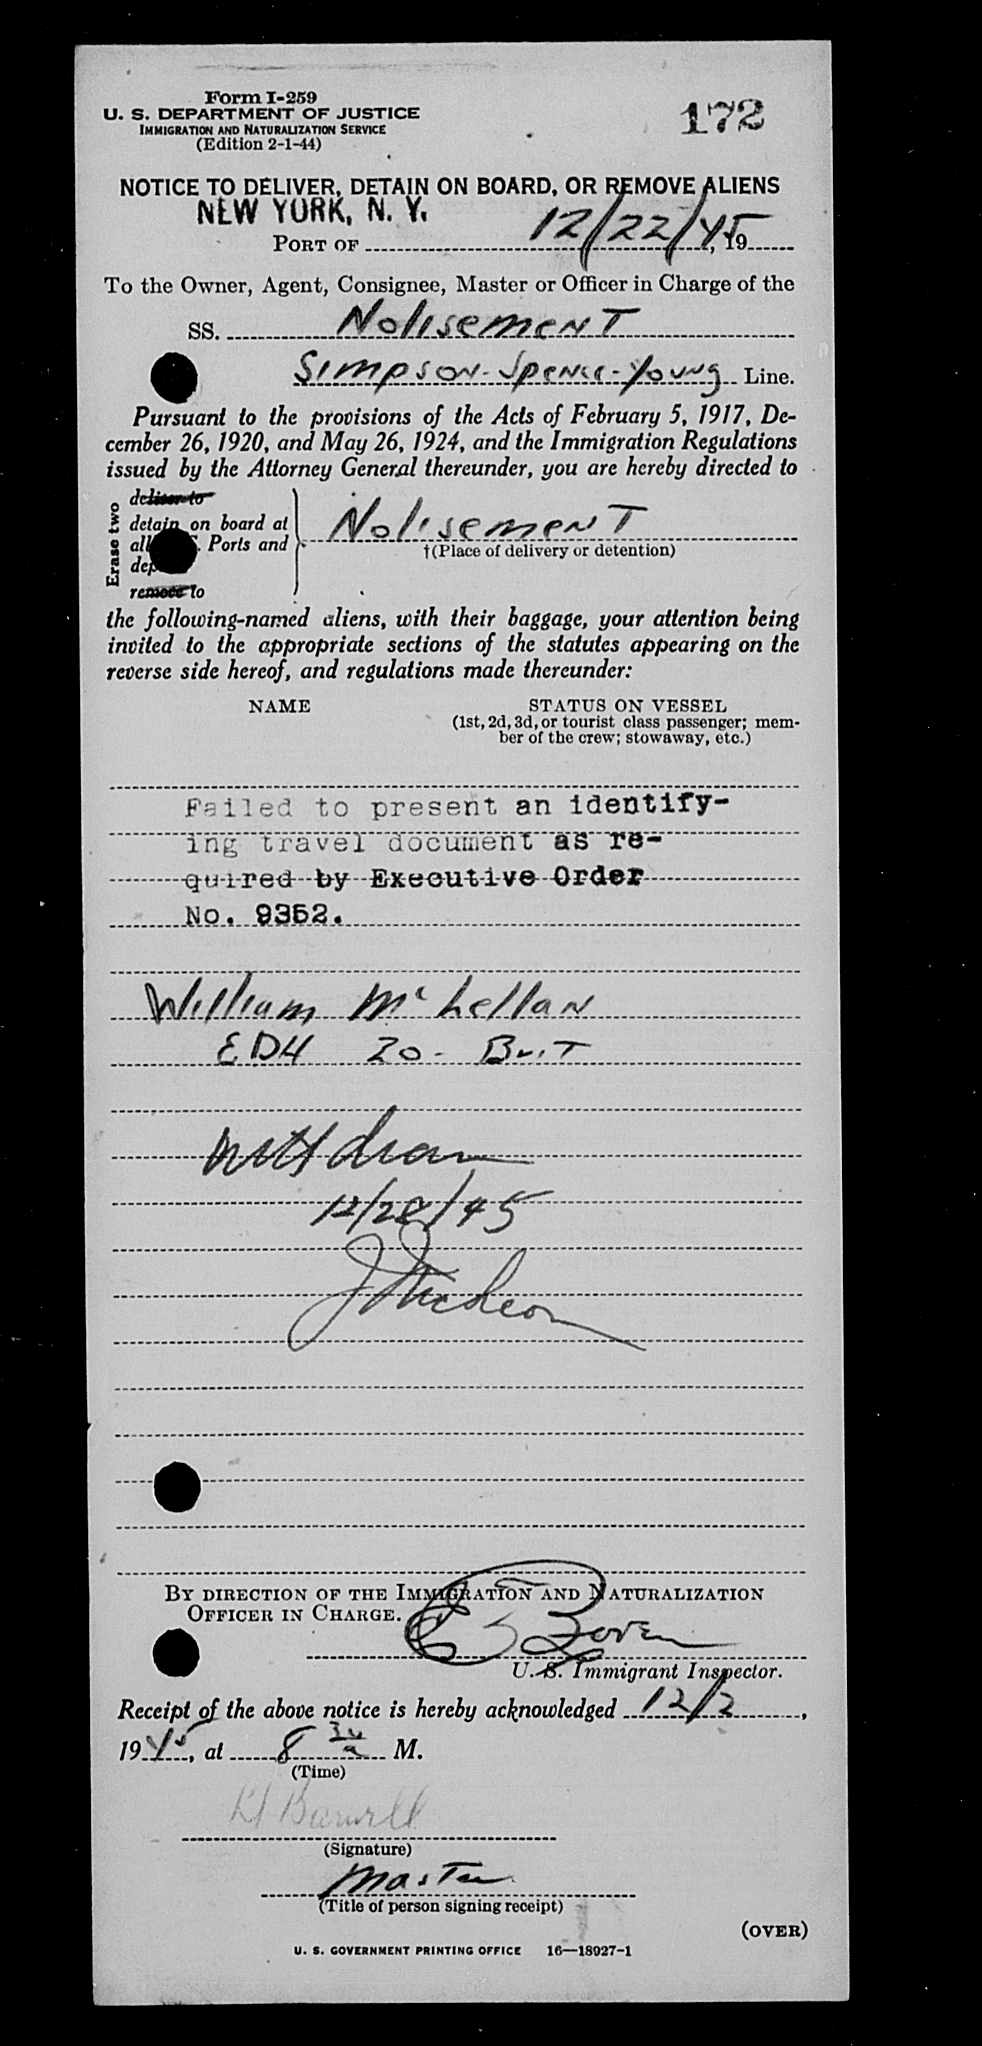 Form I-259
172
U. S. DEPARTMENT OF JUSTICE
IMMIGRATION AND NATURALIZATION SERVICE
(Edition 2-1-44)
NOTICE TO DELIVER, DETAIN ON BOARD, OR REMOVE ALIENS
NEW YORK, N. Y.
PORT OF 12/22/45, 19
To the Owner, Agent, Consignee, Master or Officer in Charge of the
SS. Nolisement
Simpson-Spence-Young Line.
Pursuant to the provisions of the Acts of February 5, 1917, De-
cember 26, 1920, and May 26, 1924, and the Immigration Regulations
issued by the Attorney General thereunder, you are hereby directed to
Erase two
deliver to
detain on board at
all Ports and
remove to
Nolisement
†(Place of delivery or detention)
the following-named aliens, with their baggage, your attention being
invited to the appropriate sections of the statutes appearing on the
reverse side hereof, and regulations made thereunder:
NAME
STATUS ON VESSEL
(1st, 2d, 3d, or tourist class passenger; mem-
ber of the crew; stowaway, etc.)
Failed to present an identify-
ing travel document as re-
quired by Executive Order
No. 9352.
William McLellan
EDH 20 - Brit
Withdrawn
12/28/45
BY DIRECTION OF THE IMMIGRATION AND NATURALIZATION
OFFICER IN CHARGE.
U. S. Immigrant Inspector.
Receipt of the above notice is hereby acknowledged 12/2,
1945, at 8 30 a M.
(Time)
(Signature)
Master
(Title of person signing receipt)
(OVER)
U. S. GOVERNMENT PRINTING OFFICE 16—18927-1